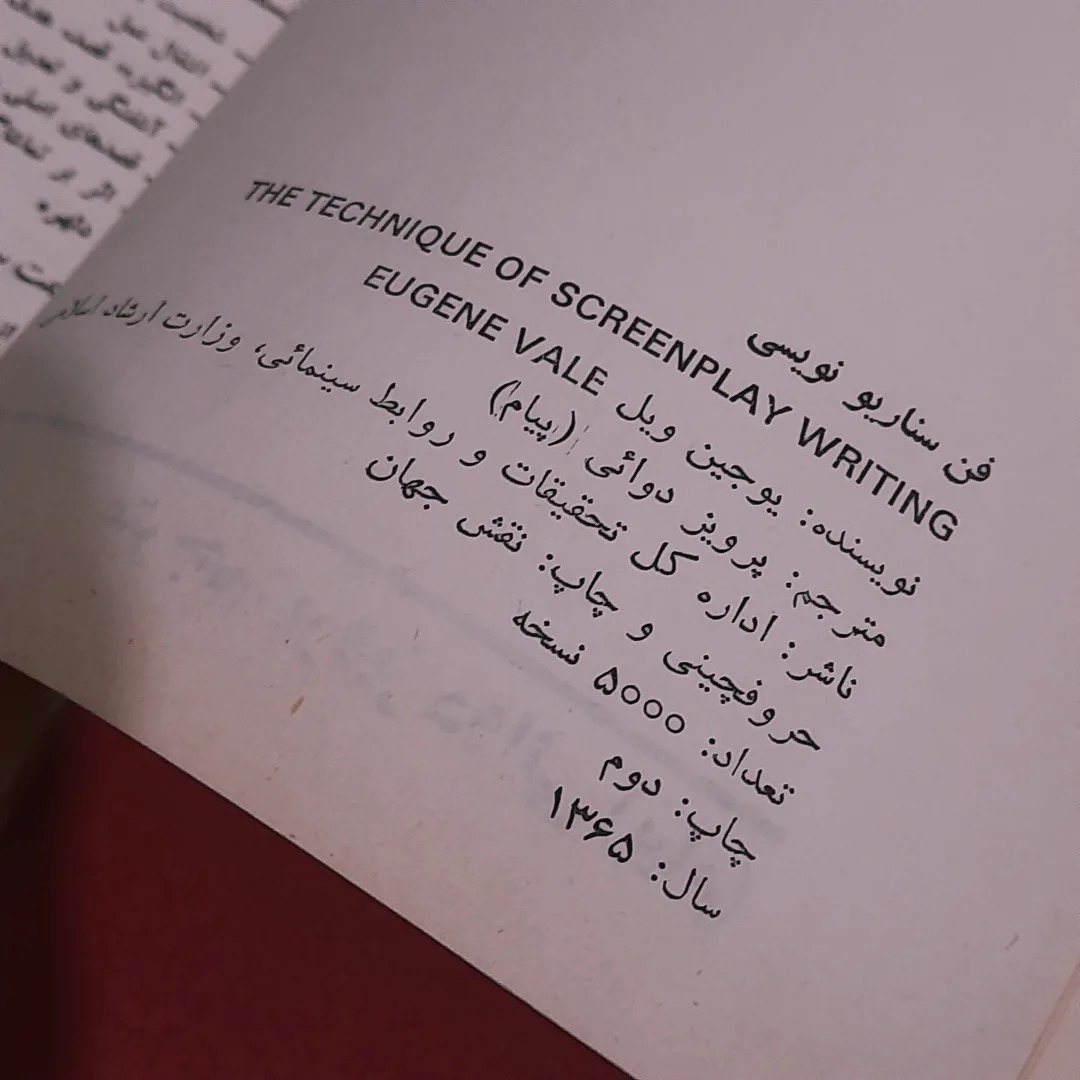 فن سناریو نویسی
THE TECHNIQUE OF SCREENPLAY WRITING
نویسنده: یوجین ویل EUGENE VALE
مترجم: پرویز دوائی (پیام)
ناشر: اداره کل تحقیقات و روابط سینمائی، وزارت ارشاد اسلامی
حروفچینی و چاپ: نقش جهان
تعداد: ۵۰۰۰ نسخه
چاپ: دوم
سال: ۱۳۶۵